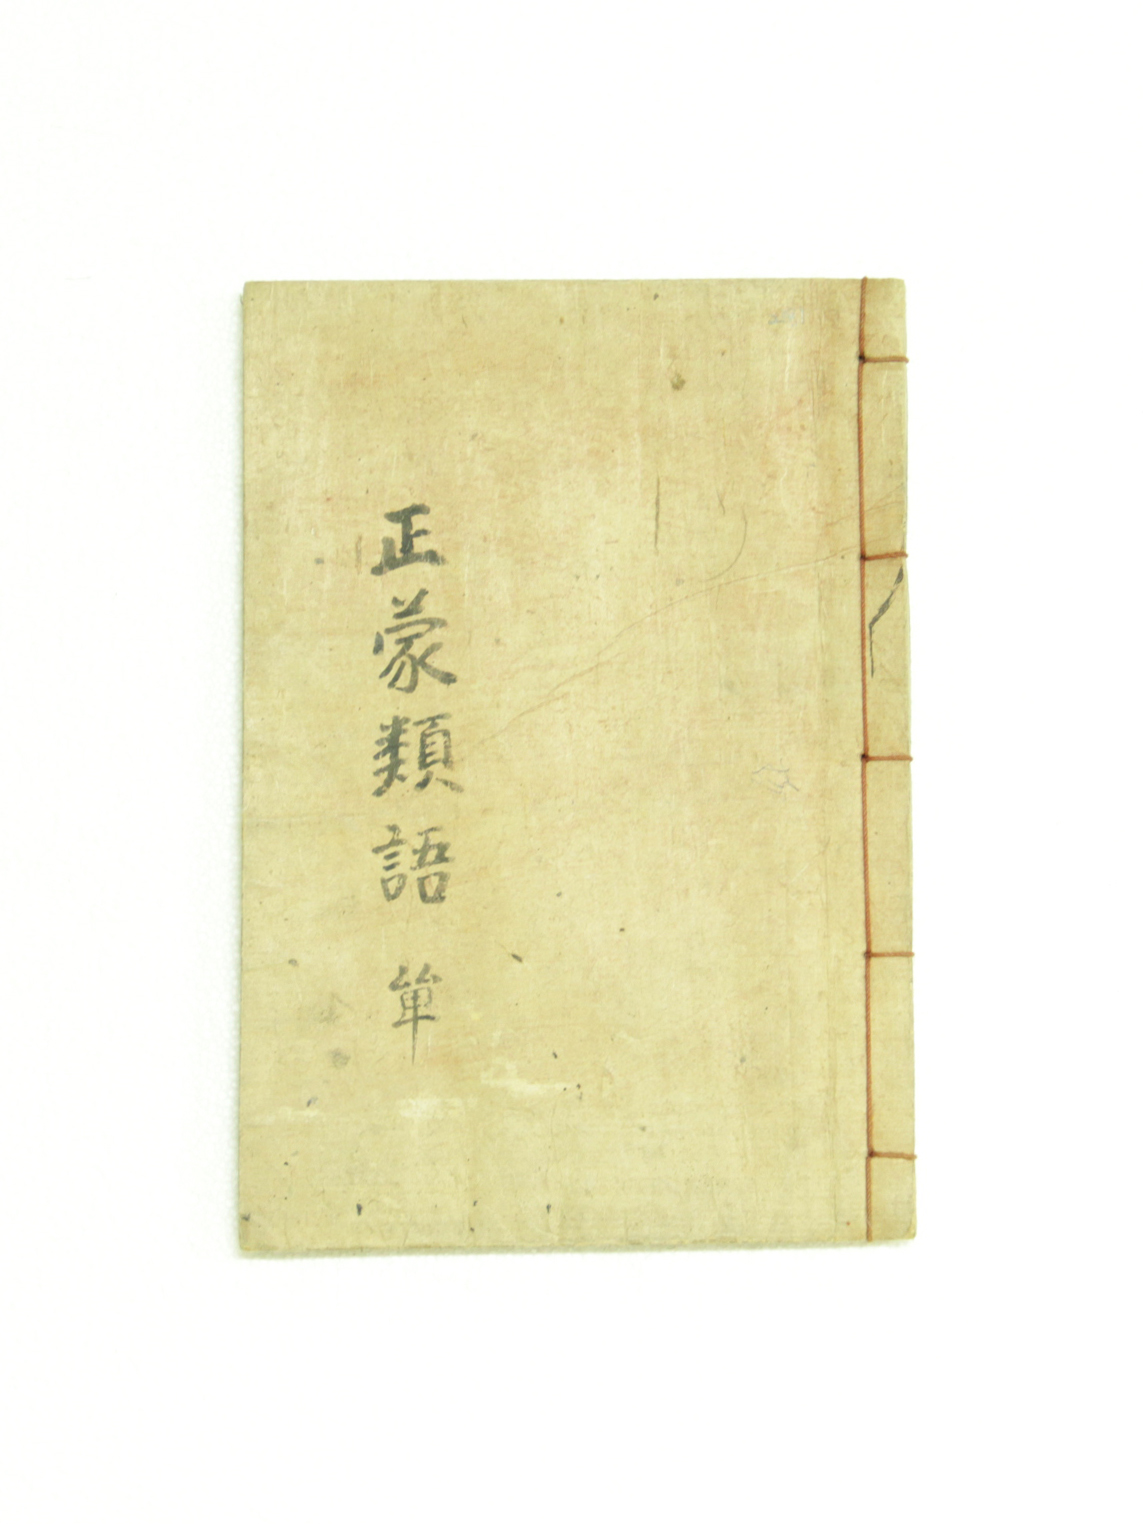 正蒙類語 單